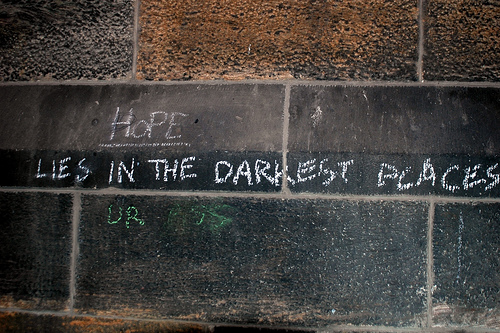 HOPE
LIES IN THE DARKEST PLACES
UR